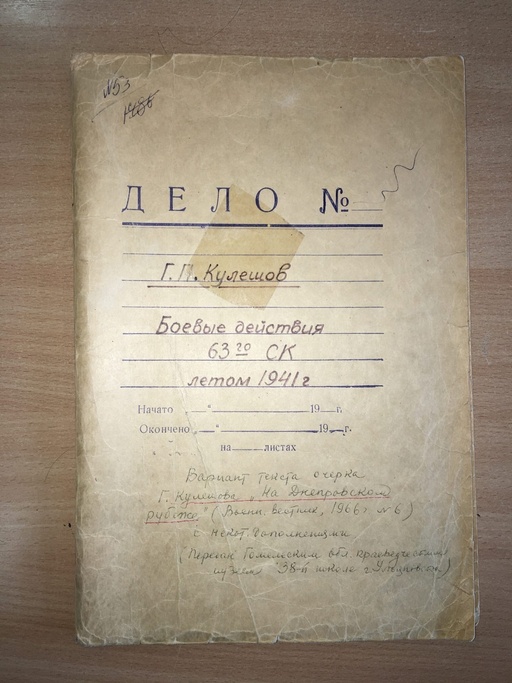 №53
1486
ДЕЛО №
Г.П. Кулешов
Боевые действия
63го СК
летом 1941г
Начато „ “ 19 г.
Окончено „ “ 19 г.
на листах
Вариант текста очерка
Г. Кулешова „На Днепровском
рубеже“ (Военн. вестник, 1966 г №6)
с некот. дополнениями
(Передан Гомельским обл. краеведческим
музеем 38-й школе г.